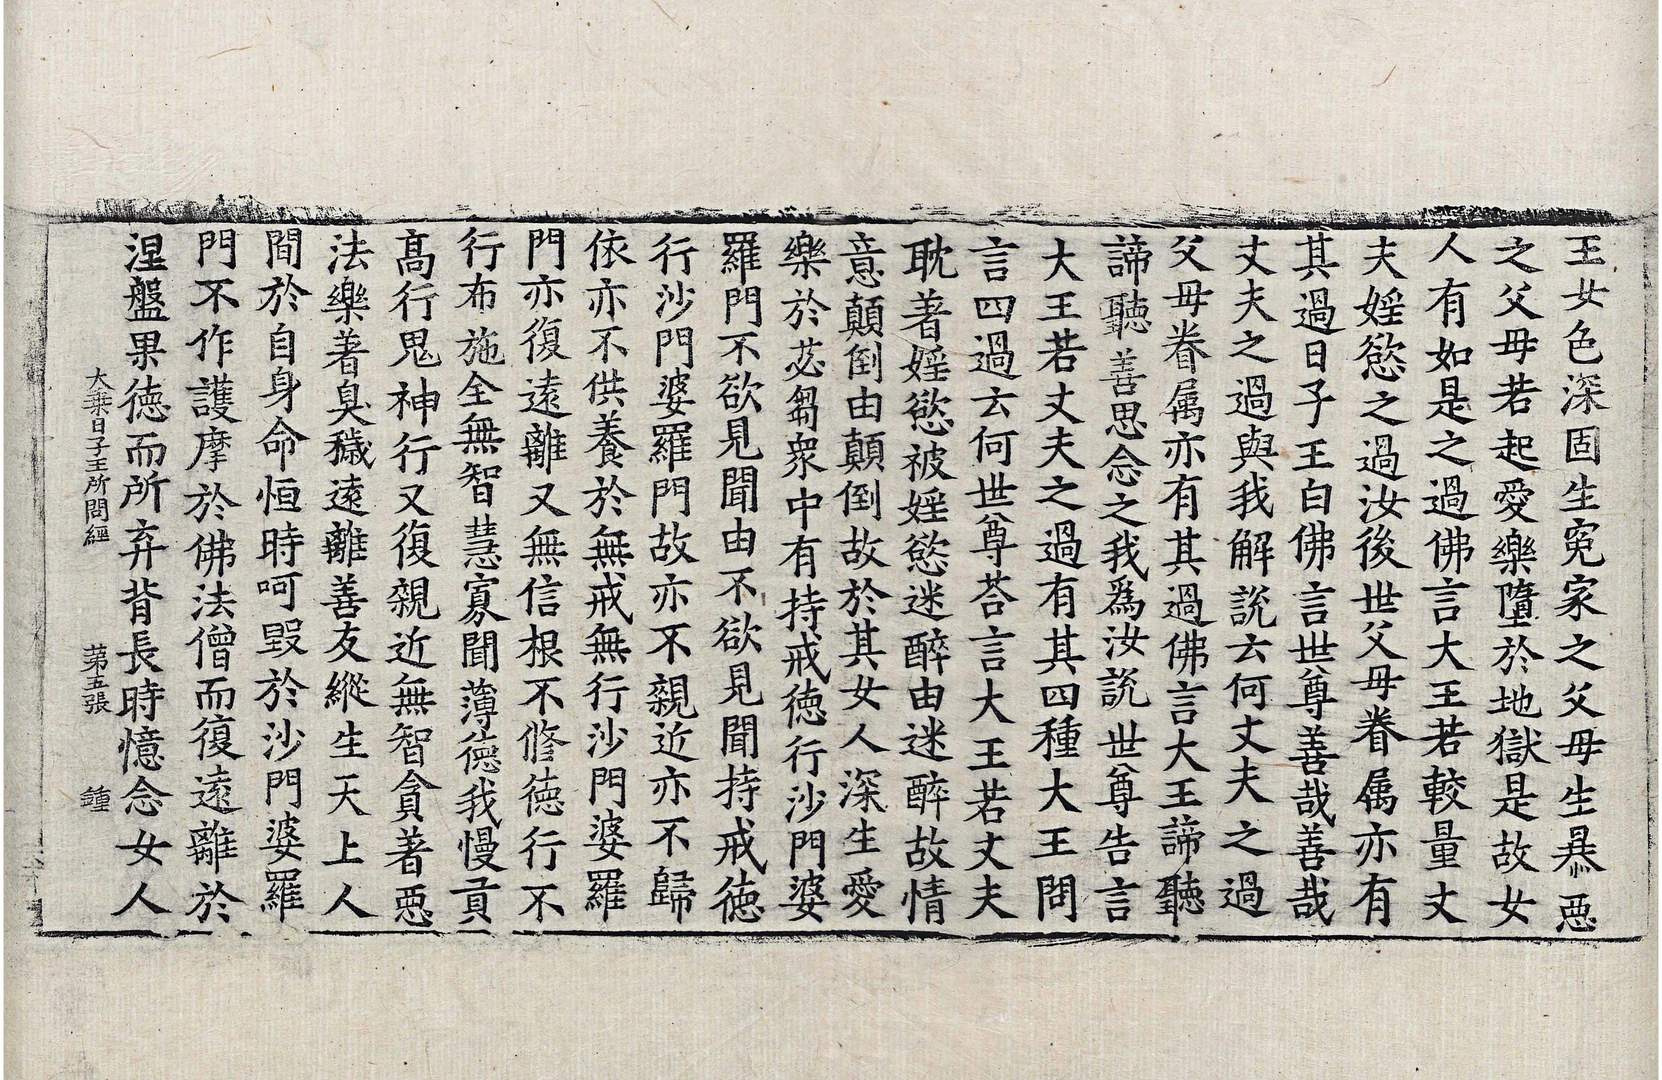 王女色深固生寃家之父母生暴悪
之父母若起愛樂墮於地獄是故女
人有如是之過佛言大王若較量丈
夫婬慾之過汝後世父母眷属亦有
其過日子王白佛言世尊善哉善哉
丈夫之過與我解說云何丈夫之過
父母眷属亦有其過佛言大王諦聽
諦聽善思念之我爲汝說世尊告言
大王若丈夫之過有其四種大王問
言四過云何世尊荅言大王若丈夫
耽著婬慾被婬慾迷醉由迷醉故情
意顛倒由顛倒故於其女人深生愛
樂於苾芻衆中有持戒徳行沙門婆
羅門不欲見聞由不欲見聞持戒徳
行沙門婆羅門故亦不親近亦不歸
依亦不供養於無戒無行沙門婆羅
門亦復遠離又無信根不修徳行不
行布施全無智慧寡聞薄徳我慢貢
髙行鬼神行又復親近無智貪著悪
法樂著臭穢遠離善友縱生天上人
間於自身命恒時呵毀於沙門婆羅
門不作護摩於佛法僧而復遠離於
涅盤果徳而所弃背長時憶念女人
大乗日子王所問經 第五張 鍾